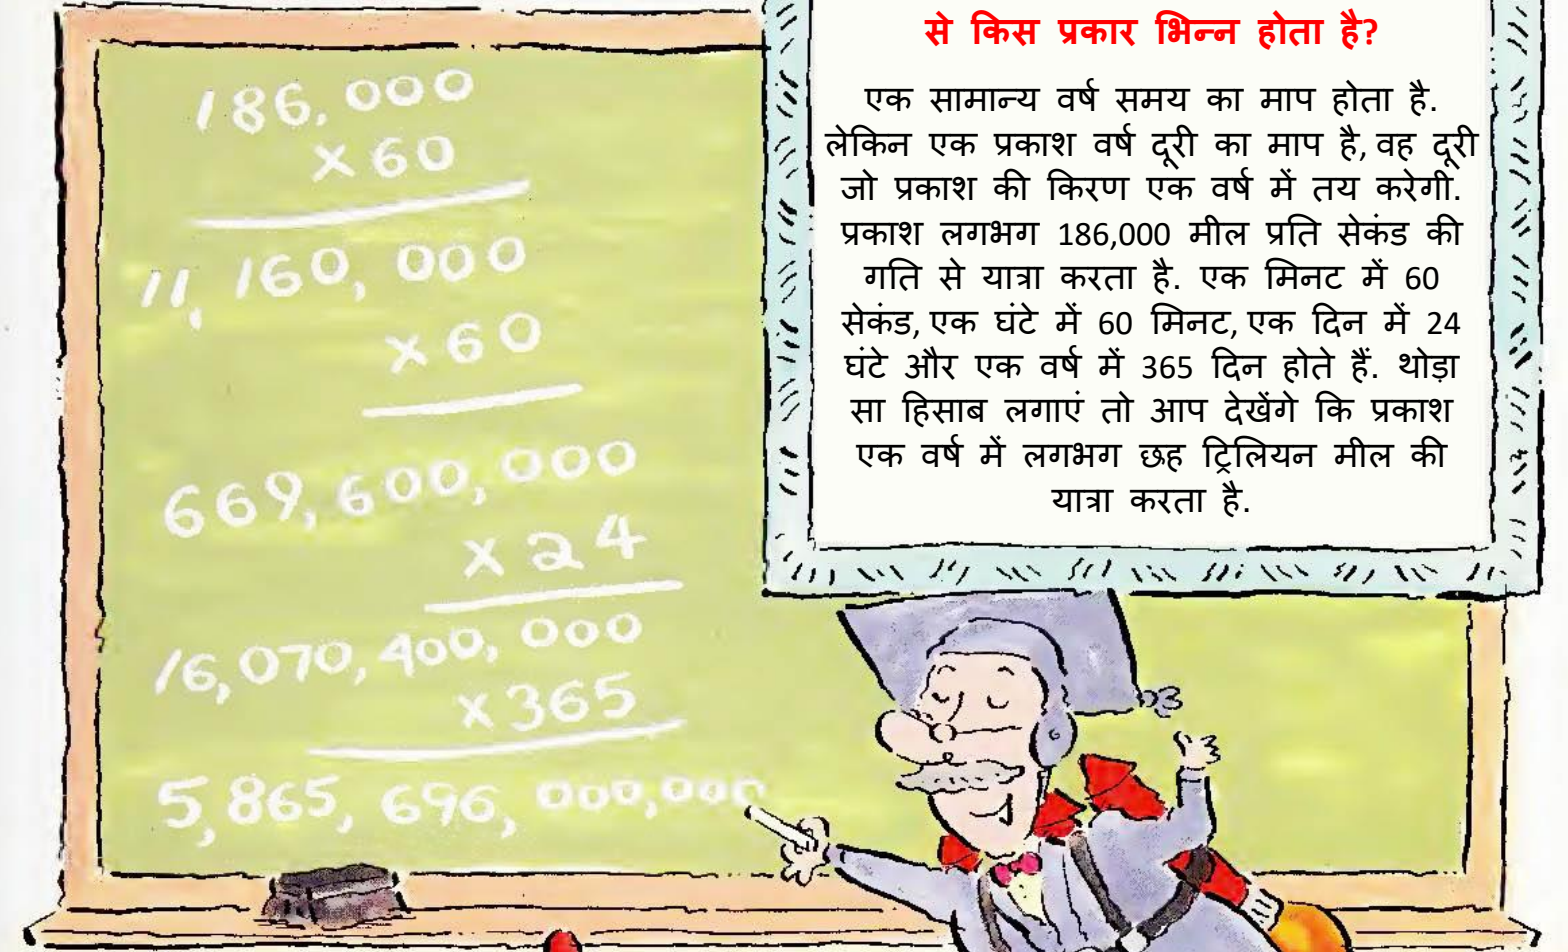 186,000
x 60
11,160,000
x 60
669,600,000
x 24
16,070,400,000
x 365
5,865,696,000,000
से किस प्रकार भिन्न होता है?
एक सामान्य वर्ष समय का माप होता है.
लेकिन एक प्रकाश वर्ष दूरी का माप है, वह दूरी
जो प्रकाश की किरण एक वर्ष में तय करेगी.
प्रकाश लगभग 186,000 मील प्रति सेकंड की
गति से यात्रा करता है. एक मिनट में 60
सेकंड, एक घंटे में 60 मिनट, एक दिन में 24
घंटे और एक वर्ष में 365 दिन होते हैं. थोड़ा
सा हिसाब लगाएं तो आप देखेंगे कि प्रकाश
एक वर्ष में लगभग छह ट्रिलियन मील की
यात्रा करता है.